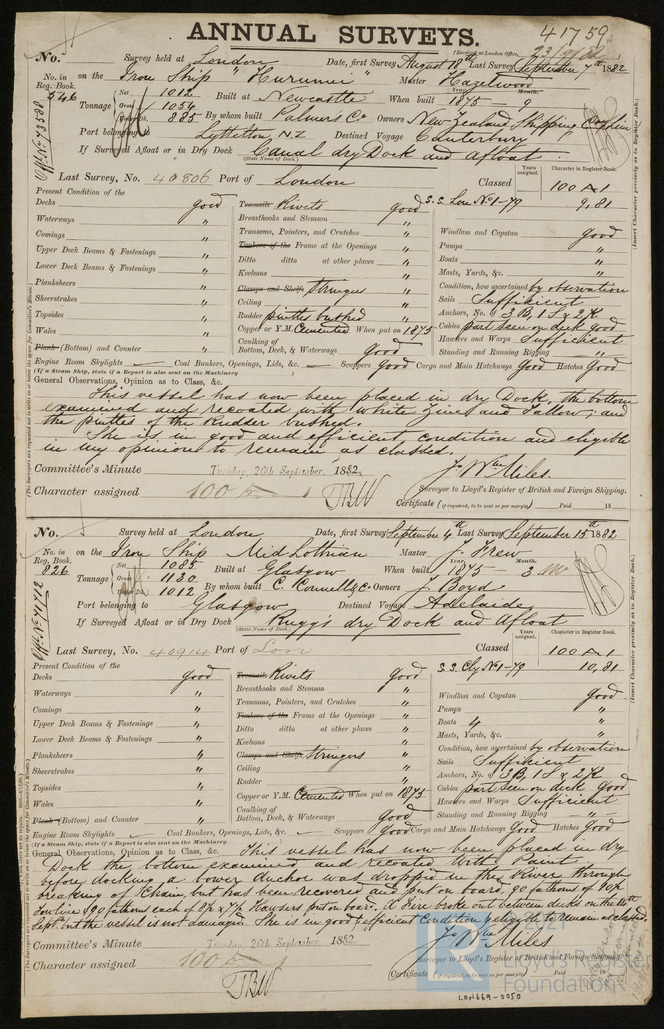 ANNUAL SURVEYS.
41759
(Received at London Office,
No. Survey held at London Date, first Survey August 18th Last Survey September 7th 1882
No. in Reg. Book. 546 on the Iron Ship "Hurunui" Master Hazelwood
Tonnage Net 1012 Gross 1054 885 Built at Newcastle When built Year. 1875 Month. 9
By whom built Palmers Co. Owners New Zealand Shipping
Port belonging to Lyttelton, N.Z Destined Voyage Canterbury
If Surveyed Afloat or in Dry Dock Canal dry Dock and Afloat.
(State Name of Dock.)
Last Survey, No. 40806 Port of London Classed Years assigned. Character in Register Book. 100 A 1
S.S. Lon No 1-79 9,81
(Insert Character precisely as in Register Book.)
Present Condition of the
Decks good
Waterways "
Comings "
Upper Deck Beams & Fastenings "
Lower Deck Beams & Fastenings "
Planksheers "
Sheerstrakes "
Topsides "
Wales "
Plank (Bottom) and Counter "
Treenails Rivets good
Breasthooks and Stemson "
Transoms, Pointers, and Crutches "
Timbers of the Frame at the Openings "
Ditto ditto at other places "
Keelsons "
Clamps and Shelfs Stringers "
Ceiling "
Rudder pintles bushed "
Copper or Y.M. Cemented When put on 1875
Caulking of Bottom, Deck, & Waterways Good
Windlass and Capstan good
Pumps "
Boats "
Masts, Yards, &c. "
Condition, how ascertained by observation
Sails Sufficient
Anchors, No. 3 B, 1 S & 2 K
Cables part seen on deck good
Hawsers and Warps Sufficient
Standing and Running Rigging "
Engine Room Skylights — Coal Bunkers, Openings, Lids, &c. — Scuppers Good Cargo and Main Hatchways Good Hatches Good
(If a Steam Ship, state if a Report is also sent on the Machinery
General Observations, Opinion as to Class, &c.
This vessel has now been placed in dry Dock, the bottom
examined and recoated with White Zinc and Tallow; and
the pintles of the Rudder bushed.
She is in good and efficient condition and eligible
in my opinion to remain as classed.
Committee's Minute Tuesday, 26th September, 1882.
Character assigned 100 A 1
TBW
Jo Wm Miles.
Surveyor to Lloyd's Register of British and Foreign Shipping.
Certificate (if required, to be sent as per margin) Paid 18
No. Survey held at London Date, first Survey September 4th Last Survey September 15th 1882
No. in Reg. Book. 826 on the Iron Ship MidLothian Master J. Frew
Tonnage Net 1085 Gross 1130 1012 Built at Glasgow When built Year. 1875 Month. 3
By whom built C. Connell & Co Owners J. Boyd
Port belonging to Glasgow Destined Voyage Adelaide
If Surveyed Afloat or in Dry Dock Rugg's dry Dock and Afloat
(State Name of Dock.)
Last Survey, No. 40914 Port of Lon Classed Years assigned. Character in Register Book. 100 A 1
S.S. Cly No 1-79 10,81
(Insert Character precisely as in Register Book.)
Present Condition of the
Decks good
Waterways "
Comings "
Upper Deck Beams & Fastenings "
Lower Deck Beams & Fastenings "
Planksheers "
Sheerstrakes "
Topsides "
Wales "
Plank (Bottom) and Counter "
Treenails Rivets Good
Breasthooks and Stemson "
Transoms, Pointers, and Crutches "
Timbers of the Frame at the Openings "
Ditto ditto at other places "
Keelsons "
Clamps and Shelfs Stringers "
Ceiling "
Rudder "
Copper or Y.M. Cemented When put on 1875
Caulking of Bottom, Deck, & Waterways Good
Windlass and Capstan Good
Pumps "
Boats 4 "
Masts, Yards, &c. "
Condition, how ascertained by observation
Sails Sufficient
Anchors, No. 3 B, 1 S & 2 K
Cables part seen on deck good
Hawsers and Warps Sufficient
Standing and Running Rigging "
Engine Room Skylights — Coal Bunkers, Openings, Lids, &c. — Scuppers Good Cargo and Main Hatchways Good Hatches Good
(If a Steam Ship, state if a Report is also sent on the Machinery
General Observations, Opinion as to Class, &c. This vessel has now been placed in dry
Dock the bottom examined and recoated with Paint
before docking a bower Anchor was dropped in the River through
breaking of Chain, but has been recovered and put on board. 90 fathoms of
Towline & 90 fathoms each of Hawsers put on board. A Fire broke out between decks on the 11th
Sept. but the vessel is not damaged. She is in good & efficient condition & eligible to remain as classed.
Committee's Minute Tuesday, 26th September, 1882.
Character assigned 100 A 1
TBW
Jo Wm Miles
Surveyor to Lloyd's Register of British and Foreign Shipping.
Certificate (if required, to be sent as per margin) Paid 18
© 2021
Lloyd's Register
Foundation
LON669-0050